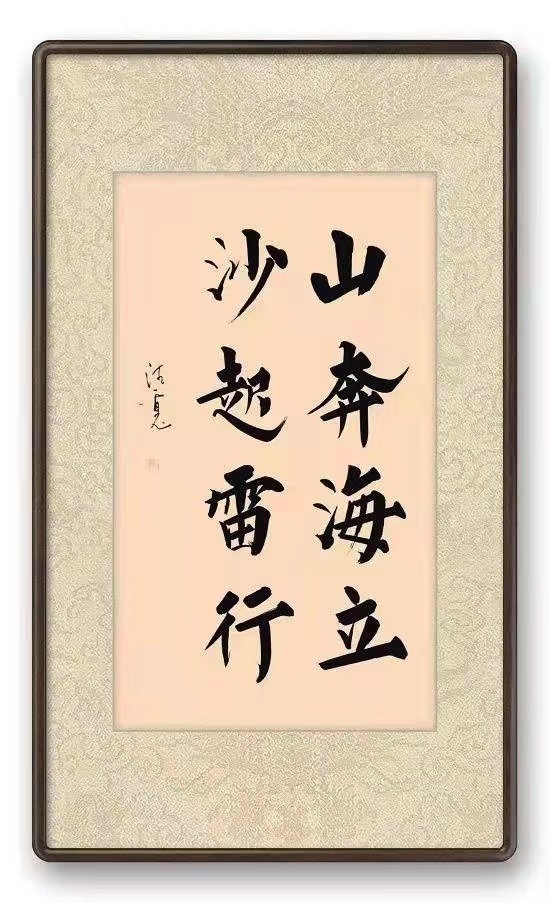 山奔海立
沙起雷行